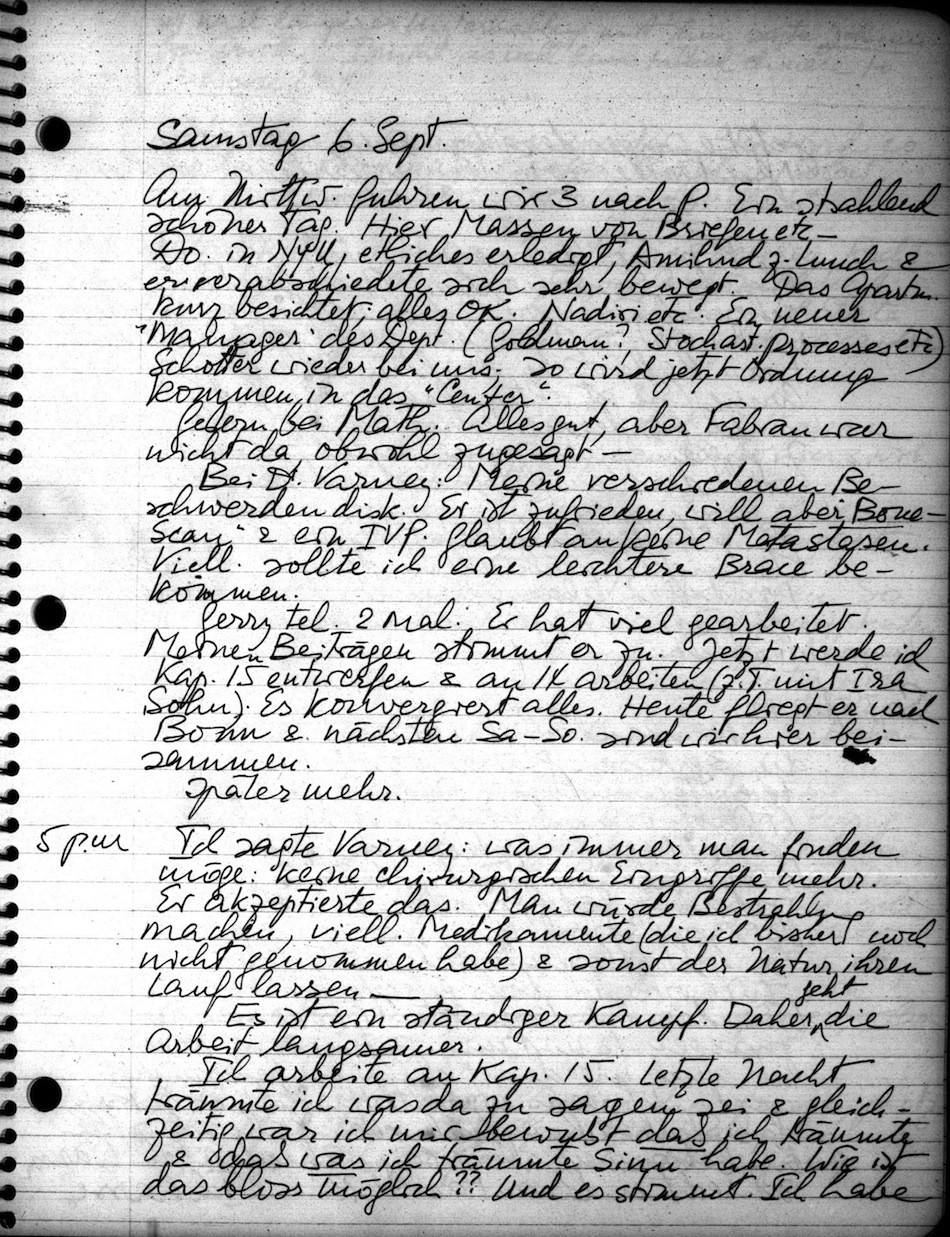 Samstag 6. Sept.
Am Mittw. fuhren wir 3 nach P. Ein strahlend
schöner Tag. Hier Massen von Briefen etc –
Do. in NYU, etliches erledigt, Amihud z. Lunch &
er verabschiedete sich sehr bewegt. Das Apartm.
kurz besichtet: alles OK. Nadiri etc. Ein neuer
"Manager" des Dept. (Goldman?, Stochast. processes etc)
Schotter wieder bei uns. So wird jetzt Ordnung
kommen in das "Center".
Gestern bei Math. Alles gut, aber Fabian war
nicht da obwohl zugesagt –
Bei Dr. Varney: Meine verschiedenen Be-
schwerden disk. Er ist zufrieden, will aber "Bone-
Scan" & ein IVP. Glaubt an keine Metastasen.
Viell. sollte ich eine leichtere Brace be-
kommen.
Gerry tel. 2 mal. Er hat viel gearbeitet.
Meinen Beiträgen stimmt er zu. Jetzt werde ich
Kap. 15 entwerfen & an 14 arbeiten (z.T. mit Ira
Sohn). Es konvergiert alles. Heute fliegt er nach
Bonn & nächsten Sa–So. sind wir hier bei-
sammen.
Später mehr.
5 p.m Ich sagte Varney: was immer man finden
möge: keine chirurgischen Eingriffe mehr.
Er akzeptierte das. Man würde Bestrahlung
machen, viell. Medikamente (die ich bisher noch
nicht genommen habe) & sonst der Natur ihren
Lauf lassen —.
Es ist ein ständiger Kampf. Daher geht die
Arbeit langsamer.
Ich arbeite an Kap. 15. Letzte Nacht
träumte ich was da zu sagen sei & gleich-
zeitig war ich mir bewußt daß ich träumte
& daß was ich träumte Sinn habe. Wie ist
das bloss möglich?? Und es stimmt. Ich habe